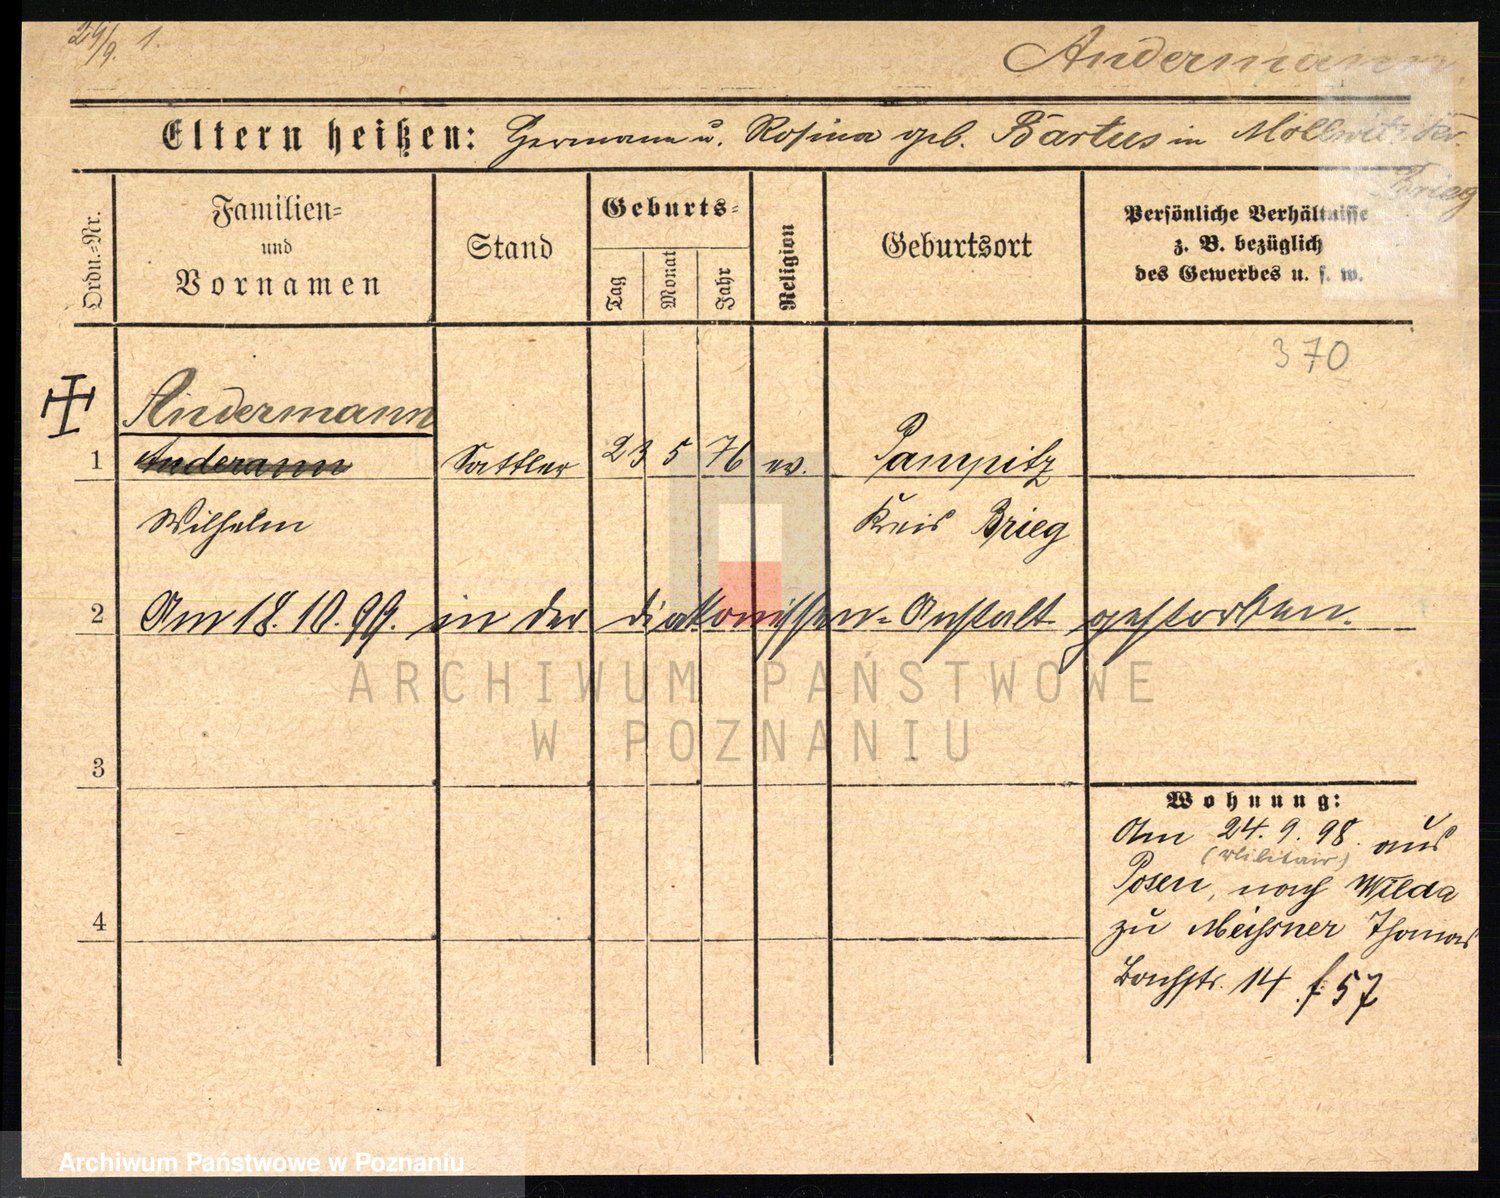 24/9. 1.
Andermann
Eltern heißen: Hermann u. Rosina geb. Bartus in Mollwitz
Brieg
Ordn.-Nr.
Familien-
und
Vornamen
Stand
Geburts-
Tag
Monat
Jahr
Religion
Geburtsort
Persönliche Verhältnisse
z. B. bezüglich
des Gewerbes u. s. w.
370
Andermann
1 Anderann Sattler 23 5 76 ev. Pampitz
Wilhelm Kreis Brieg
2 Am 18. 10. 99. in der Diakonissen-Anstalt gestorben.
ARCHIWUM PAŃSTWOWE
W POZNANIU
3
Wohnung:
Am 24. 9. 98. aus
(Militair)
Posen, nach Wilda
4
zu Meißner Thomas
Bachstr. 14 f 57
Archiwum Państwowe w Poznaniu